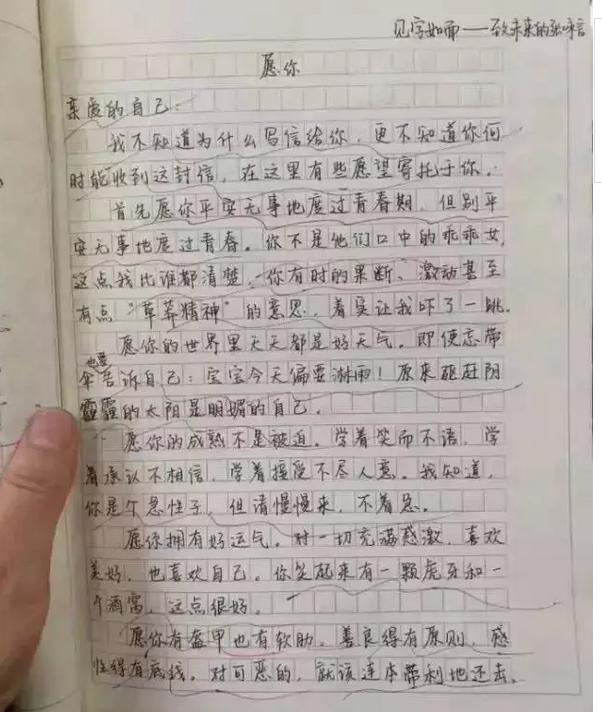 见字如面——致未来的张咏言
愿你
亲爱的自己:
我不知道为什么写信给你,更不知道你何
时能收到这封信,在这里有些愿望寄托于你。
首先愿你平安无事地度过青春期,但别平
安无事地度过青春。你不是他们口中的乖乖女,
这点我比谁都清楚,你有时的果断、激动甚至
有点“草莽精神”的意思,着实让我吓了一跳。
愿你的世界里天天都是好天气。即使忘带
伞也要告诉自己:宝宝今天偏要淋雨!原来驱赶阴
霾的太阳是明媚的自己。
愿你的成熟不是被迫。学着笑而不语,学
着承认不相信,学着接受不尽人意。我知道,
你是个急性子,但请慢慢来,不着急。
愿你拥有好运气。对一切充满感激,喜欢
美好,也喜欢自己。你笑起来有一颗虎牙和一
个酒窝,这点很好。
愿你有盔甲也有软肋。善良得有原则,感
性得有底线。对可恶的,就该连本带利地还击。